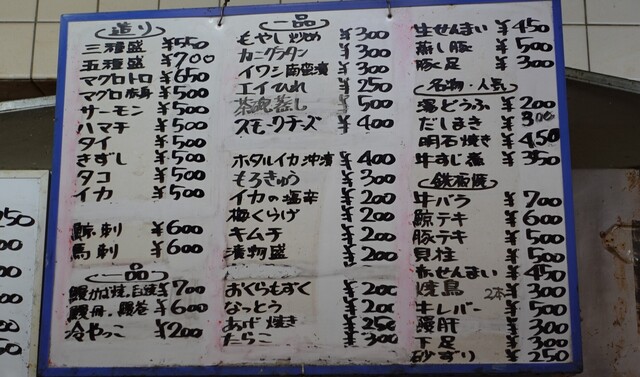 造り
三種盛 ¥550
五種盛 ¥700
マグロトロ ¥650
マグロ赤身 ¥500
サーモン ¥500
ハマチ ¥500
タイ ¥500
きずし ¥500
タコ ¥500
イカ ¥500
鯨刺 ¥600
馬刺 ¥600
一品
¥700
¥600
冷やっこ ¥200
一品
もやし炒め ¥300
カニグラタン ¥300
イワシ南蛮漬 ¥300
エイひれ ¥250
茶碗蒸し ¥500
スモークチーズ ¥400
ホタルイカ沖漬 ¥400
もろきゅう ¥300
イカの塩辛 ¥200
梅くらげ ¥200
キムチ ¥200
漬物盛 ¥200
おくらもずく ¥200
なっとう ¥200
あげ焼き ¥250
たらこ ¥300
生せんまい ¥450
蒸し豚 ¥500
豚足 ¥300
名物・人気
湯どうふ ¥200
だしまき ¥300
明石焼き ¥450
牛すじ煮 ¥350
鉄板焼
牛バラ ¥700
鯨テキ ¥600
豚テキ ¥500
貝柱 ¥500
赤せんまい ¥450
焼鳥 2本 ¥300
牛レバー ¥500
豚肝 ¥300
下足 ¥300
砂ずり ¥250
250